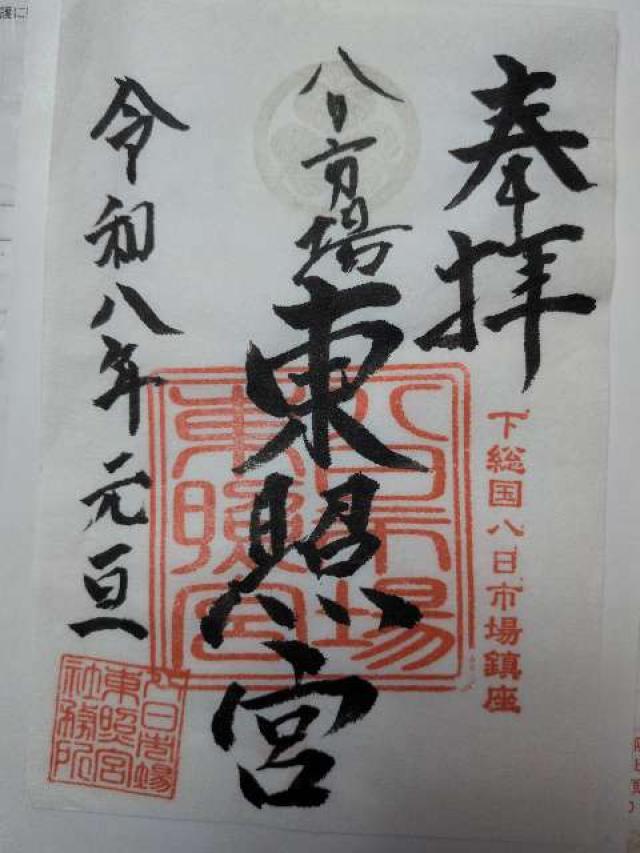 奉拝
下総国八日市場鎮座
八日市場
東照宮
八日市場
東照宮
令和八年元旦
八日市場
東照宮
社務所